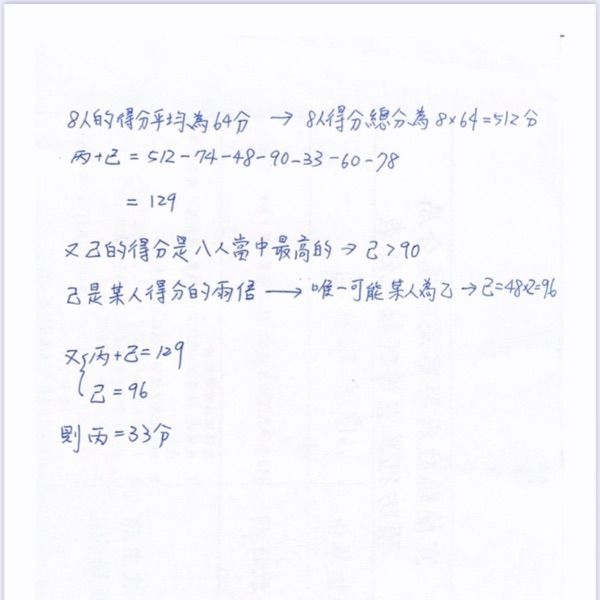 8人的得分平均為64分 → 8人得分總分為8×64=512分
丙+己=512-74-48-90-33-60-78
=129
又己的得分是八人當中最高的→己>90
己是某人得分的兩倍→唯一可能某人為乙→己=48×2=96
又{丙+己=129
己=96
則丙=33分